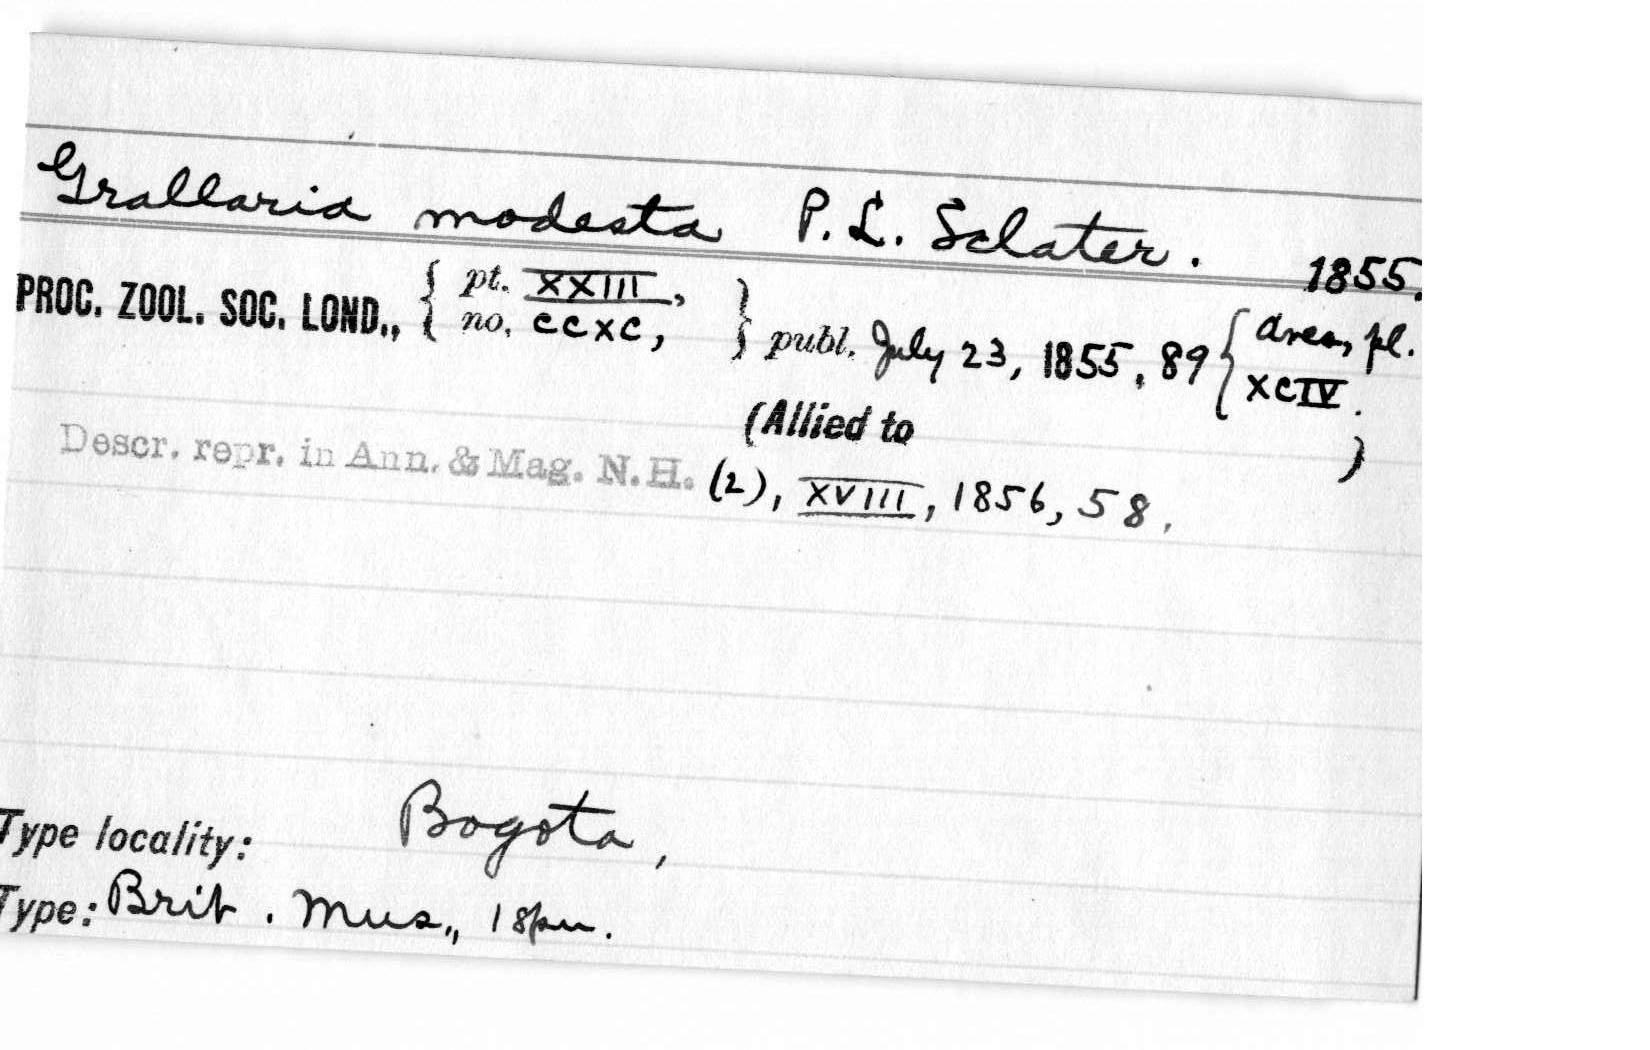 Grallaria modesta P. L. Sclater. 1855.
PROC. ZOOL. SOC. LOND., { pt. XXIII, no. CCXC, } publ. July 23, 1855, 89 { Aves, pl. XCIV.
(Allied to )
Descr. repr. in Ann. & Mag. N.H. (2), XVIII, 1856, 58.
Type locality: Bogota,
Type: Brit. Mus., 1 spm.